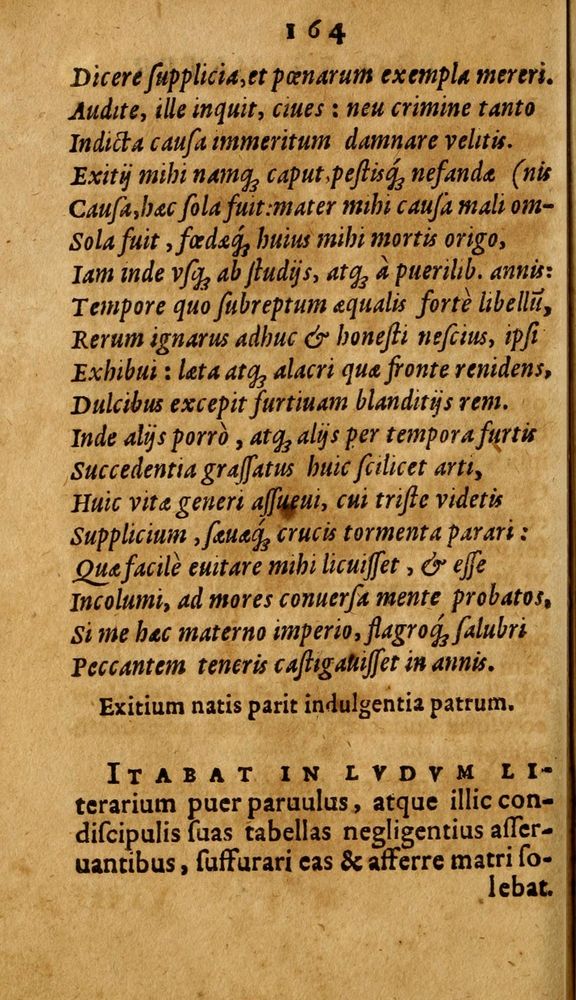 164
Dicere ſupplicia, et pœnarum exempla mereri.
Audite, ille inquit, ciues : neu crimine tanto
Indicta cauſa immeritum damnare velitis.
Exitij mihi namq́ꝫ caput, peſtisq́ꝫ nefandæ (nis
Cauſa, hæc ſola fuit: mater mihi cauſa mali om-
Sola fuit, fœdæq́ꝫ huius mihi mortis origo,
Iam inde vſqꝫ ab ſtudijs, atqꝫ à puerilib. annis:
Tempore quo ſubreptum æqualis fortè libellũ,
Rerum ignarus adhuc & honeſti neſcius, ipſi
Exhibui : læta atqꝫ alacri quæ fronte renidens,
Dulcibus excepit furtiuam blanditijs rem.
Inde alijs porrò, atqꝫ alijs per tempora furtis
Succedentia graſſatus huic ſcilicet arti,
Huic vitæ generi aſſueui, cui triſte videtis
Supplicium, ſæuaq́ꝫ crucis tormenta parari :
Quæ facilè euitare mihi licuiſſet, & eſſe
Incolumi, ad mores conuerſa mente probatos,
Si me hæc materno imperio, flagroq́ꝫ ſalubri
Peccantem teneris caſtigauiſſet in annis.
Exitium natis parit indulgentia patrum.
ITABAT IN LVDVM LI-
terarium puer paruulus, atque illic con-
diſcipulis ſuas tabellas negligentius aſſer-
uantibus, ſuffurari eas & afferre matri ſo-
lebat.